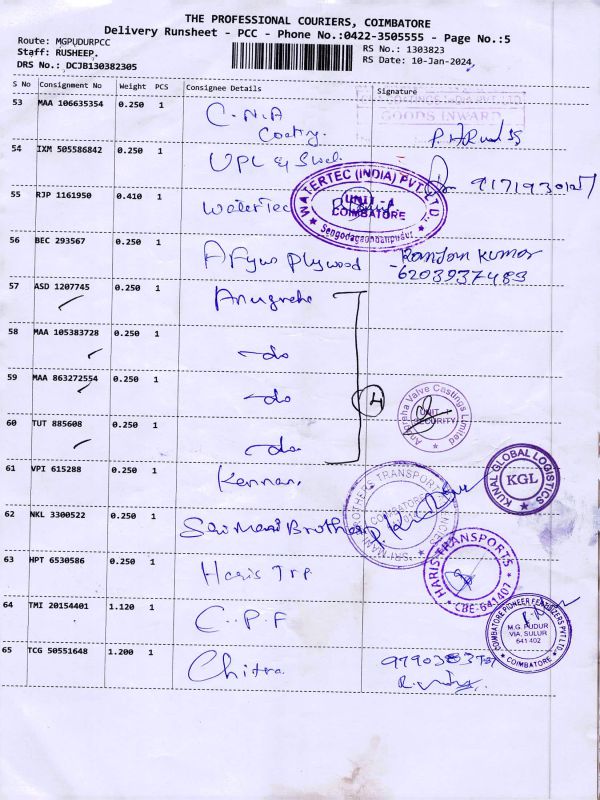 THE PROFESSIONAL COURIERS, COIMBATORE
Delivery Runsheet - PCC - Phone No.:0422-3505555 - Page No.:5
Route: MGPUDURPCC
Staff: RUSHEEP.
DRS No.: DCJB130382305
RS No.: 1303823
RS Date: 10-Jan-2024,
S No Consignment No Weight PCS Consignee Details Signature
GOODS INWARD
53 MAA 106635354 0.250 1 C.N.A Coatry.
54 IXM 505586842 0.250 1 UPL &
55 RJP 1161950 0.410 1 WaterTec
WATERTEC (INDIA) PVT. LTD.,
UNIT - I
COIMBATORE
Sengodagoundanpudur
56 BEC 293567 0.250 1 Plywood Ranjan Kumar
6203937483
57 ASD 1207745 0.250 1 Anugraha
58 MAA 105383728 0.250 1 -do
59 MAA 863272554 0.250 1 -do
4
Anugraha Valve Castings Limited
UNIT - I
SECURITY
60 TUT 885608 0.250 1 -do-
61 VPI 615288 0.250 1 Kannan.
KUNAL GLOBAL LOGISTICS
KGL
62 NKL 3300522 0.250 1 Sri Mani Brothers
63 HPT 6530586 0.250 1 Haris Trp
HARIS TRANSPORTS
CBE-641407
64 TMI 20154401 1.120 1 C.P.F
COIMBATORE PIONEER FERTILIZERS PVT LTD.
M.G. PUDUR
VIA, SULUR
641 402
COIMBATORE
65 TCG 50551648 1.200 1 Chitra.